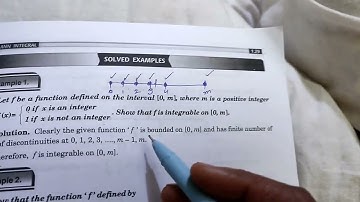 ANN INTEGRAL
7.29
SOLVED EXAMPLES
ample 1.
0 1 2 3 4 m
Let f be a function defined on the interval [0, m], where m is a positive integer
f(x) = { 0 if x is an integer
1 if x is not an integer . Show that f is integrable on [0, m].
olution. Clearly the given function ' f ' is bounded on [0, m] and has finite number of
of discontinuities at 0, 1, 2, 3, ...., m – 1, m.
erefore, f is integrable on [0, m].
ple 2.
the function ' f ' defined by